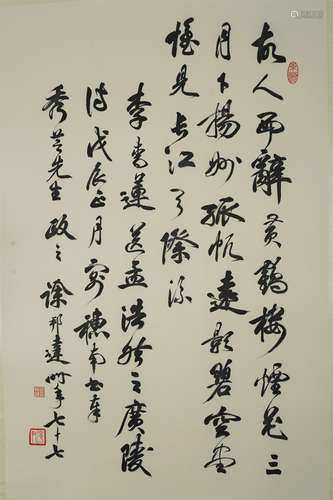 故人西辭黃鶴樓煙花三
月下揚州孤帆遠影碧空盡
惟見長江天際流
李青蓮送孟浩然之廣陵
詩戊辰正月客穗南書奉
秀先生政之 徐邦達時年七十七